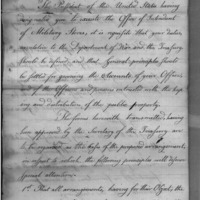 The President of the United States having
vested you to execute the Office of Superintendent
of Military Stores, it is requisite that your duties
in relation to the Department of War and the Treasury
should be defined, and that General principles should
be settled for governing the Accounts of your Officers
and of the Officers and persons entrusted with the keeping
and distribution of the public property.
The forms herewith transmitted, having
been approved by the Secretary of the Treasury are
to be regarded as the basis of the proposed arrangement,
in respect to which the following principles will deserve
special attention.
1st. That all arrangements, having for their Object, the